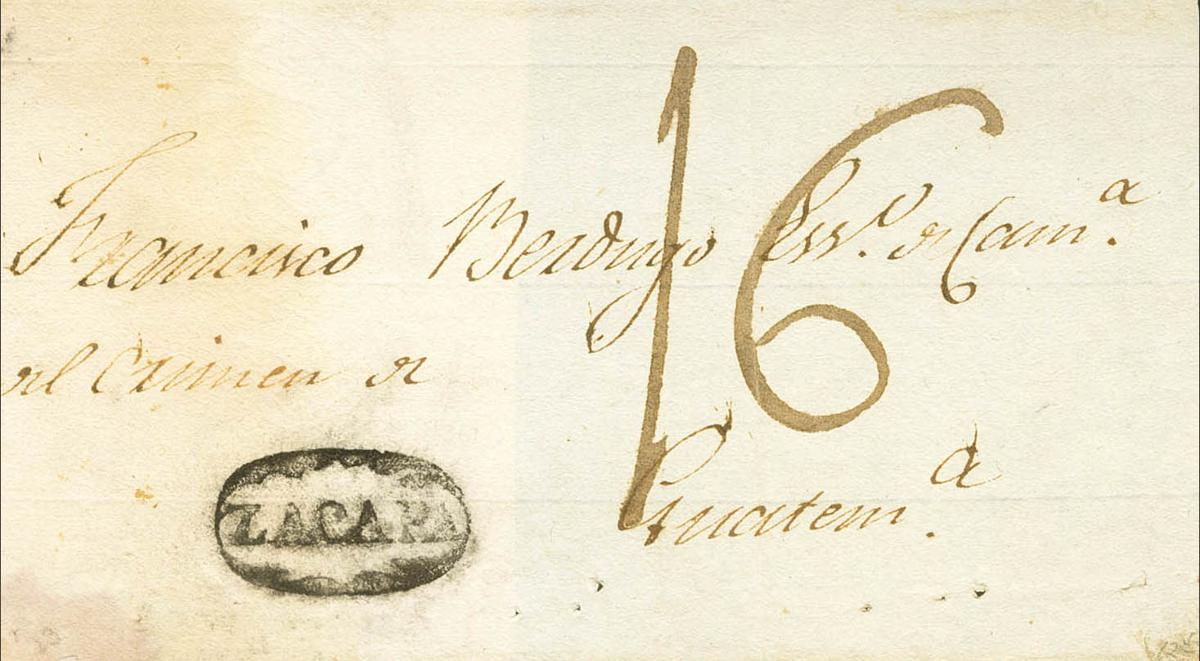 Francisco Berdugo Ess.º de Cam.ª
16
del Crimen de
Guatem.ª
ZACAPA